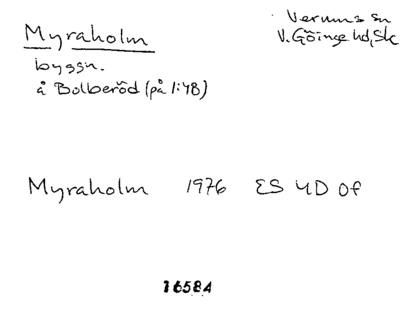 Myraholm
Verums sn
V. Göinge hd, Sk
byggn.
å Bolberöd (på 1:48)
Myraholm 1976 ES 4D 0f
16584